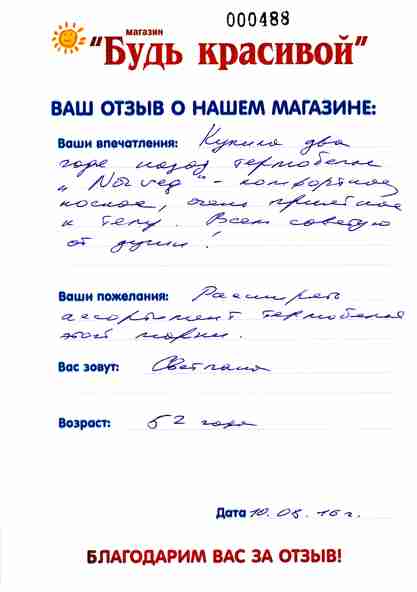 000488
магазин
"Будь красивой"
ВАШ ОТЗЫВ О НАШЕМ МАГАЗИНЕ:
Ваши впечатления: Купила два
года назад термобелье
"Norveg" - комфортное,
ноское, очень приятное
к телу. Всем советую
от души!
Ваши пожелания: Расширять
ассортимент термобелья
этой марки.
Вас зовут: Светлана
Возраст: 52 года
Дата 10.05.16 г.
БЛАГОДАРИМ ВАС ЗА ОТЗЫВ!